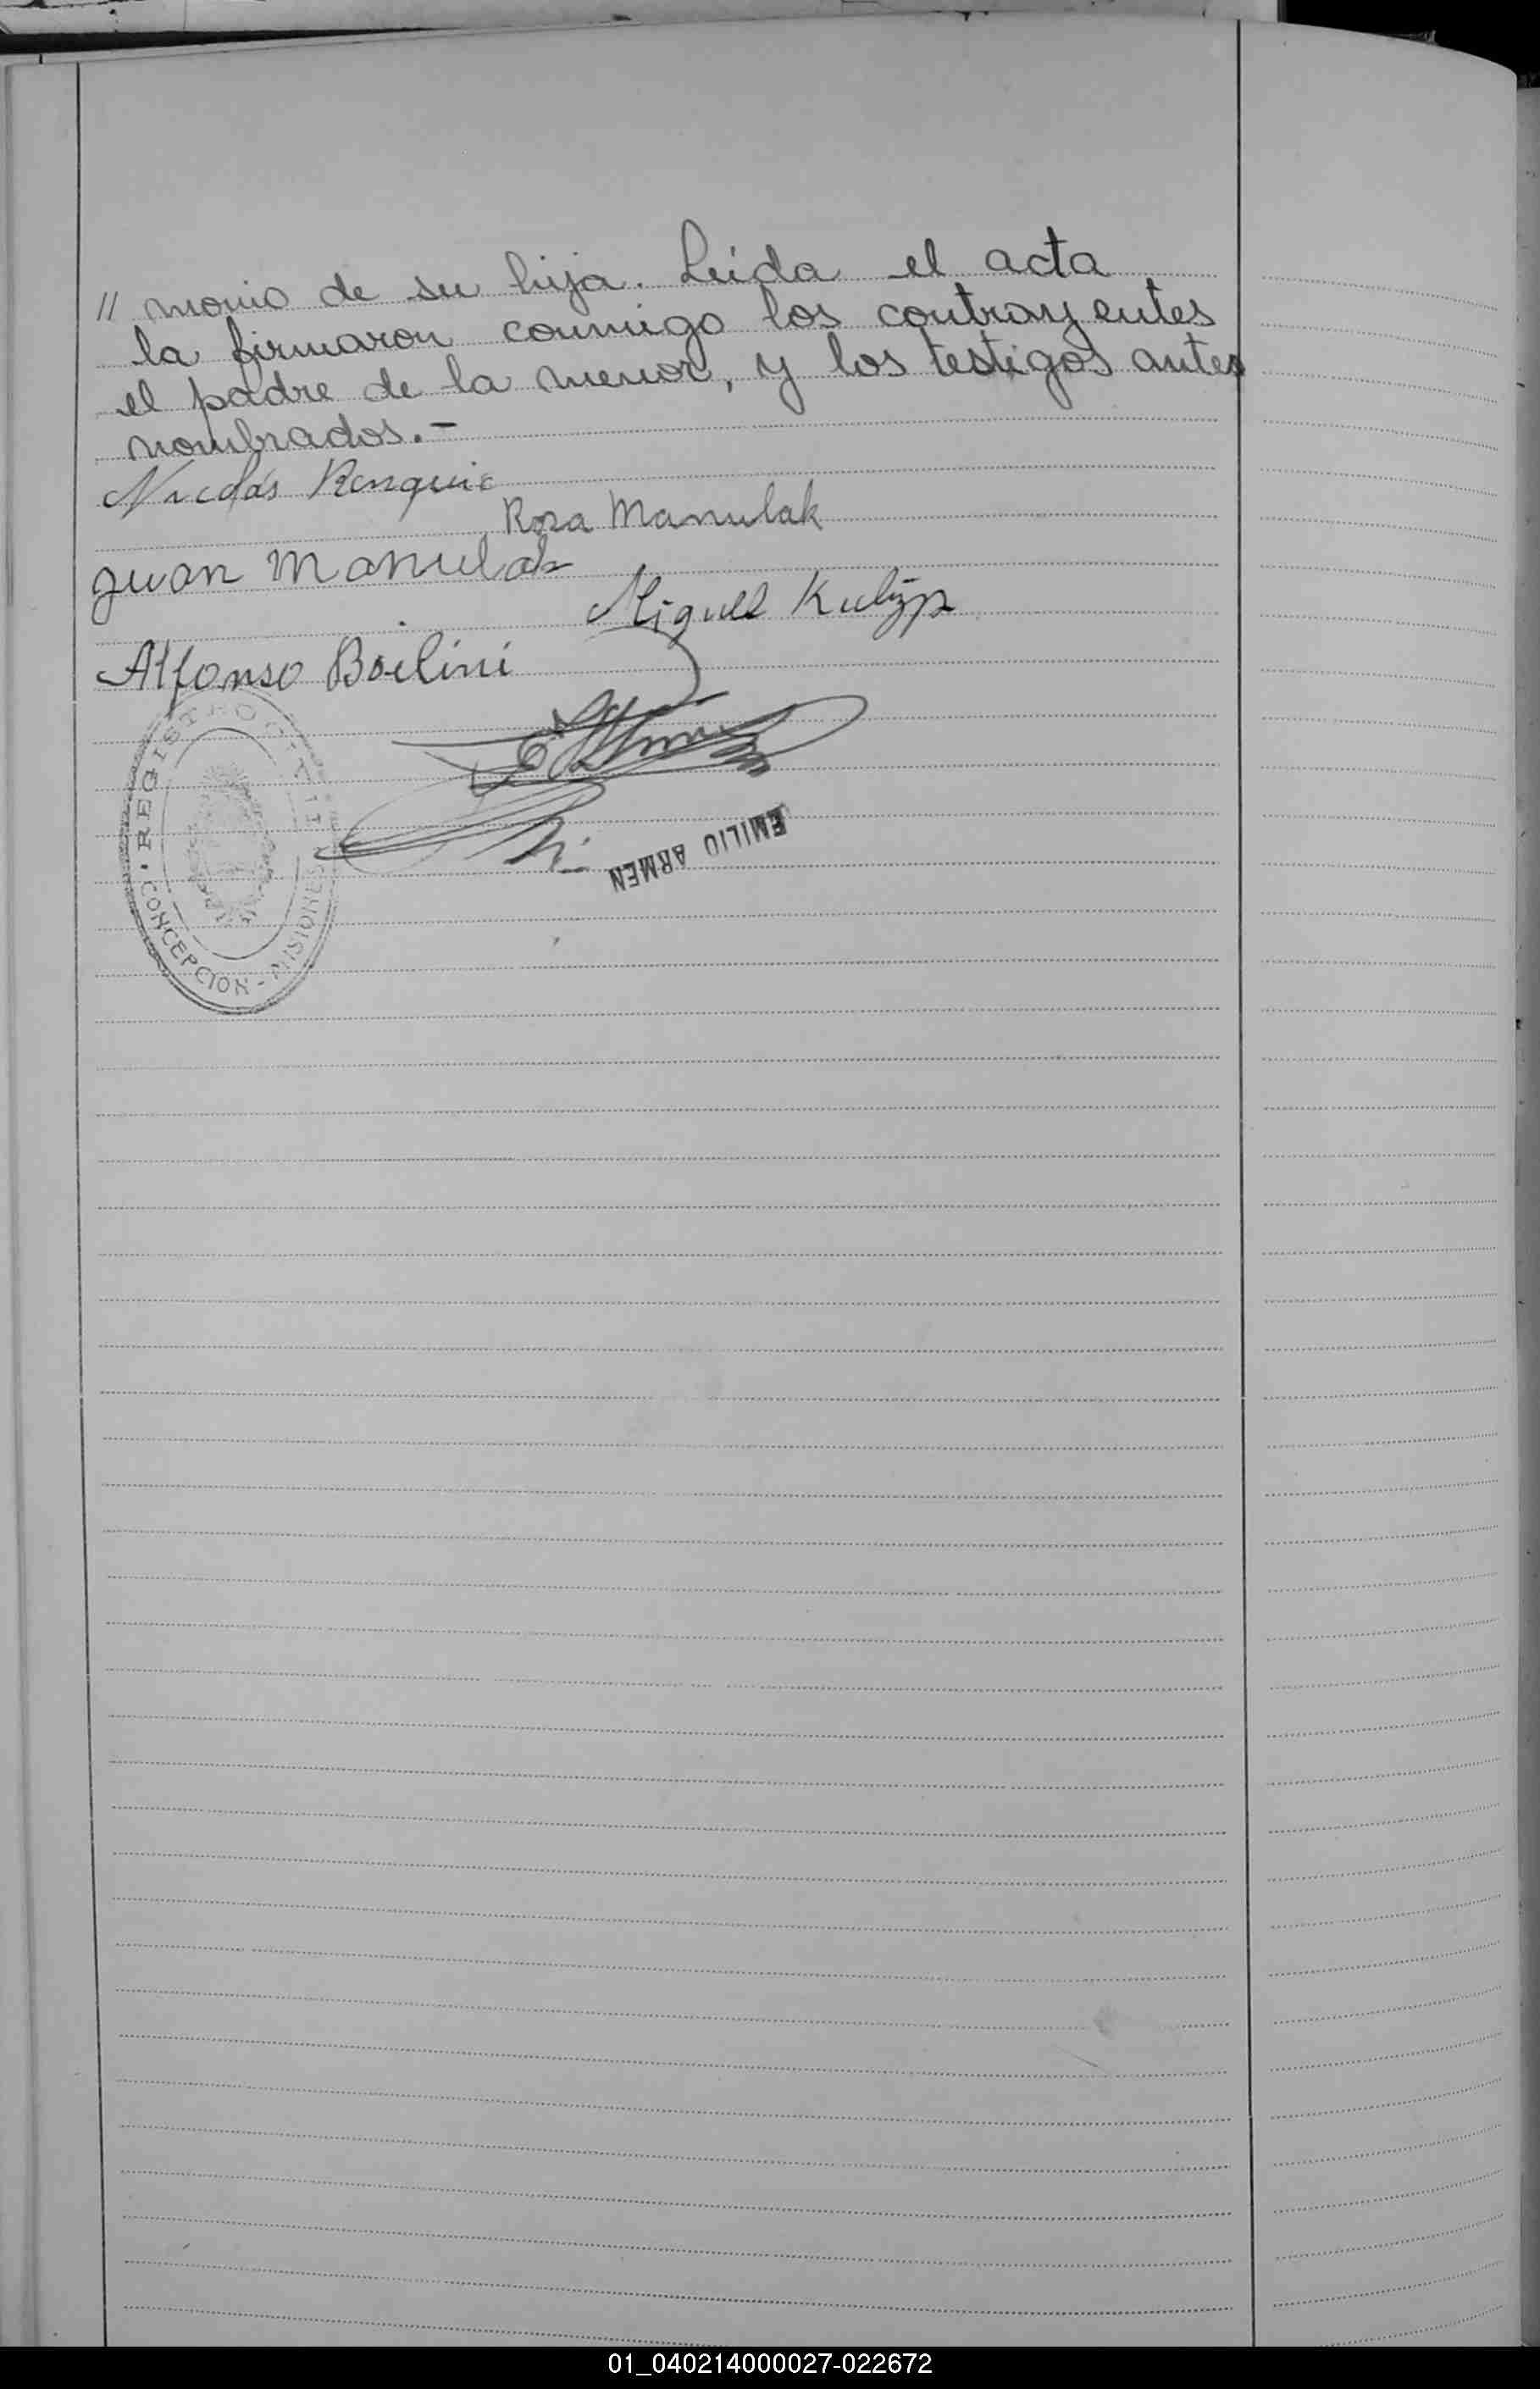 // monio de su hija. Leida el acta
la firmaron conmigo los contrayentes
el padre de la menor, y los testigos antes
nombrados.-
Nicolás
Rosa Manulak
Juan Manulak
Miguel
Alfonso Boilini
REGISTRO CIVIL
CONCEPCION - MISIONES
EMILIO ARMEN
01_040214000027-022672